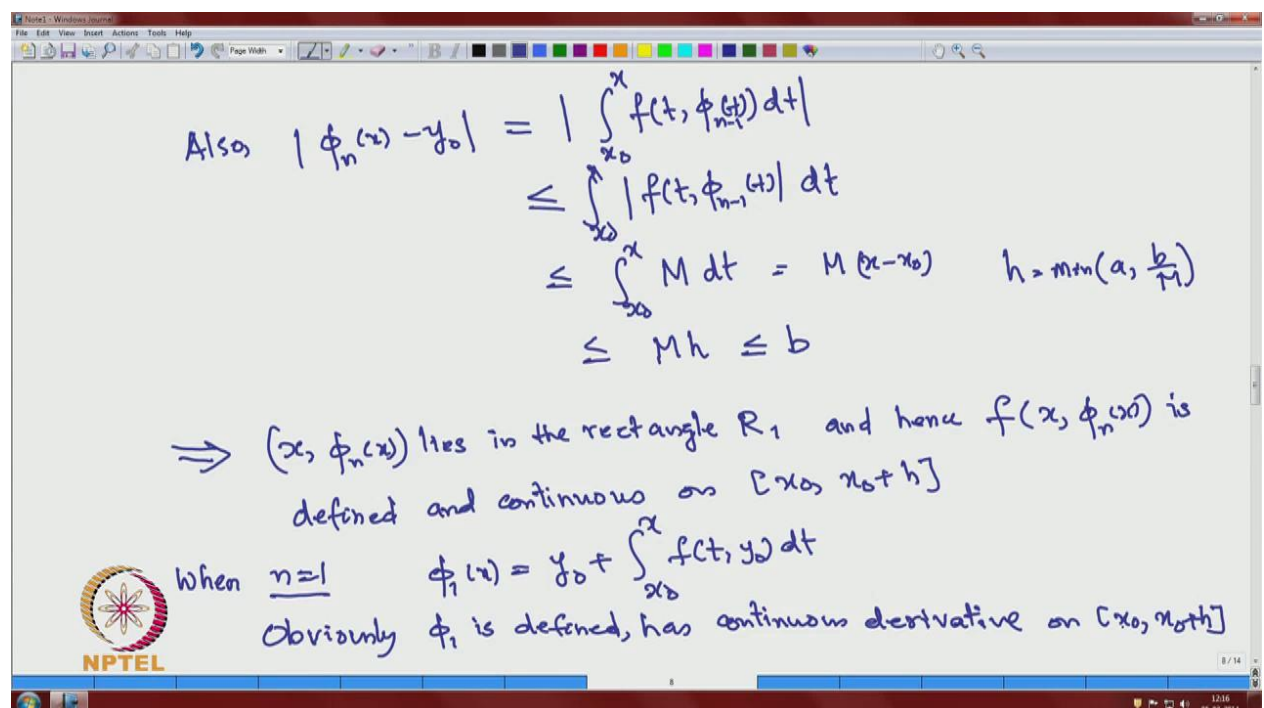 Note1 - Windows Journal
File Edit View Insert Actions Tools Help
Page Width
Also, | ϕ_n(x) - y_0 | = | ∫_{x_0}^{x} f(t, ϕ_{n-1}(t)) dt |
≤ ∫_{x_0}^{x} | f(t, ϕ_{n-1}(t)| dt
≤ ∫_{x_0}^{x} M dt = M (x-x_0) h = min(a, b/M)
≤ Mh ≤ b
⟹ (x, ϕ_n(x)) lies in the rectangle R_1 and hence f(x, ϕ_n(x)) is
defined and continuous on [x_0, x_0+h]
When n=1 ϕ_1(x) = y_0 + ∫_{x_0}^{x} f(t, y_0) dt
Obviously ϕ_1 is defined, has continuous derivative on [x_0, x_0+h]
NPTEL
8 / 14
8
12:16